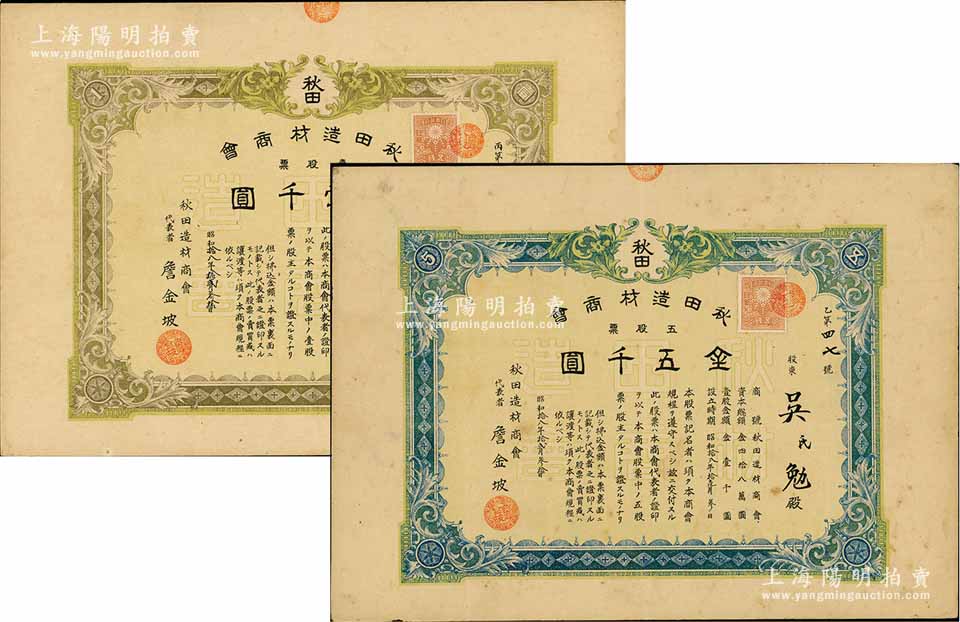 上海陽明拍賣
www.yangmingauction.com
秋田
秋田造材商會
千圓
此ノ股票ハ本商會代表者ノ證印
ヲ以テ本商會股票中ノ壹股
票ノ股主タルコトヲ證スルモノナリ
但シ拂込金額ハ本票裏面ニ
記載シテ代表者之ニ證印スル
モノトス此ノ股票ノ賣買或ハ
讓渡等ハ須ク本商會規程ニ
依ルベシ
秋田造材商會
代表者 詹金坡
1
丙第
上海陽明拍賣
www.yangmingauction.com
秋田
秋田造材商會
五股票
金五千圓
5
乙第四七號
股東 吳氏勉殿
商號 秋田造材商會
資本總額 金四拾八萬圓
壹股金額 金壹千圓
本股票記名者ハ須ク本商會
規程ヲ遵守スベシ茲ニ交付スル
此ノ股票ハ本商會代表者ノ證印
ヲ以テ本商會股票中ノ五股
票ノ股主タルコトヲ證スルモノナリ
但シ拂込金額ハ本票裏面ニ
記載シテ代表者之ニ證印スル
モノトス此ノ股票ノ賣買或ハ
讓渡等ハ須ク本商會規程ニ
依ルベシ
秋田造材商會
代表者 詹金坡
上海陽明拍賣
www.yangmingauction.com